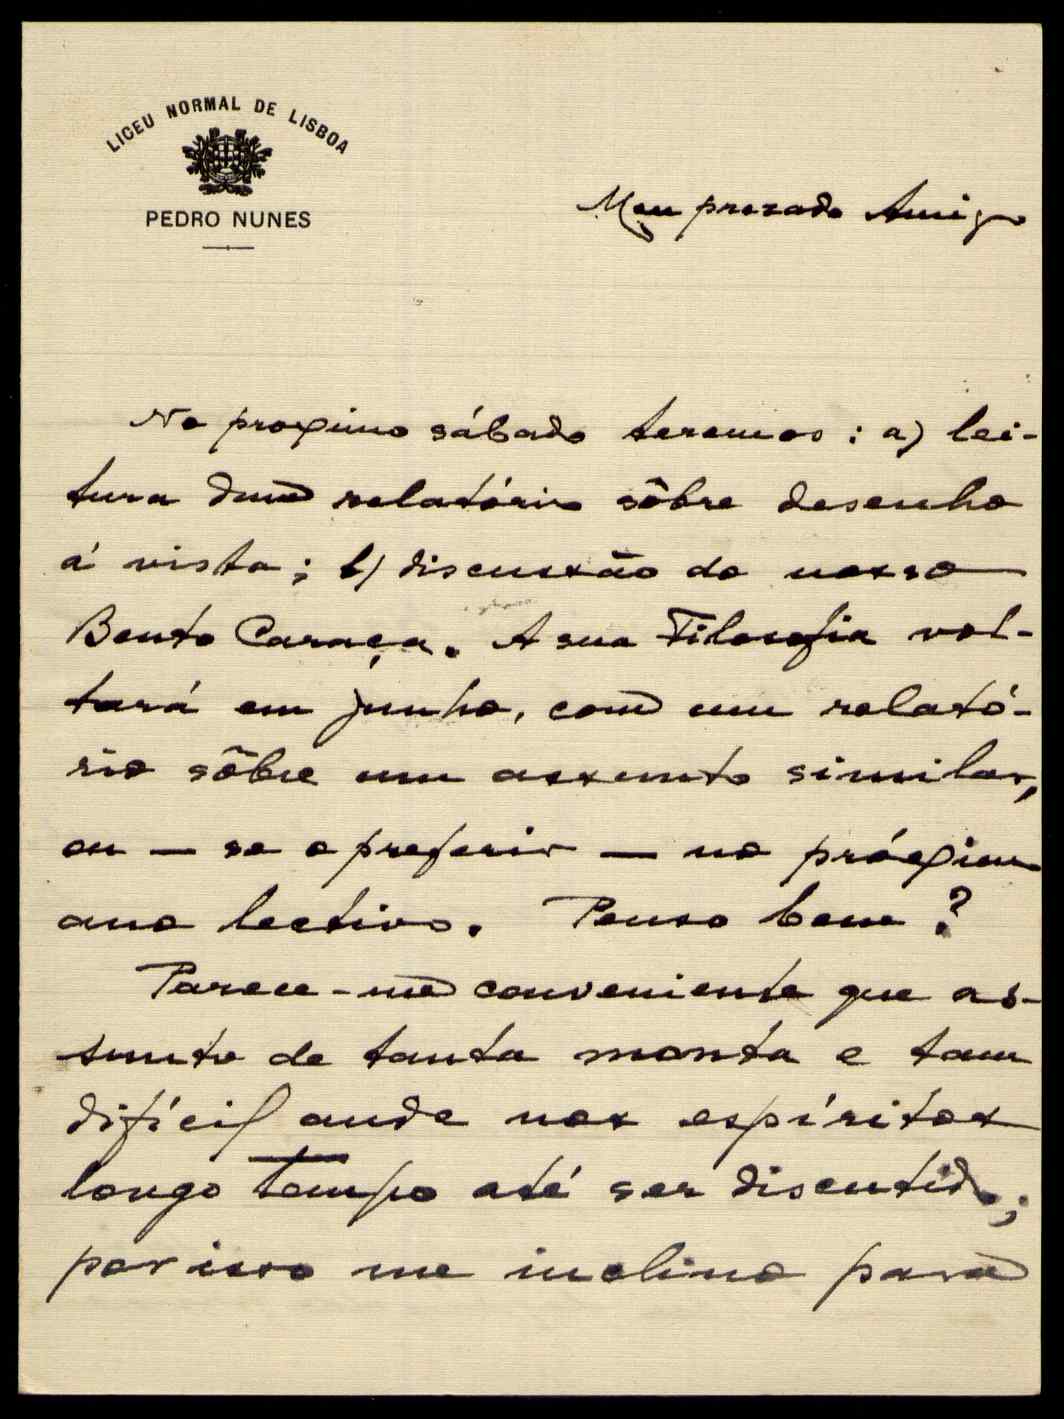 LICEU NORMAL DE LISBOA
PEDRO NUNES
Meu prezado Amigo
No proximo sábado teremos: a) lei-
tura dum relatório sôbre desenho
á vista; b) discussão do nosso
Bento Caraça. A sua Filosofia vol-
tará em junho, com um relató-
rio sôbre um assunto similar,
ou — se o preferir — no próximo
ano lectivo. Penso bem?
Parece-me conveniente que as-
sunto de tanta monta e tam
difícil ande nos espíritos
longo tempo até ser discutido;
por isso me inclino para